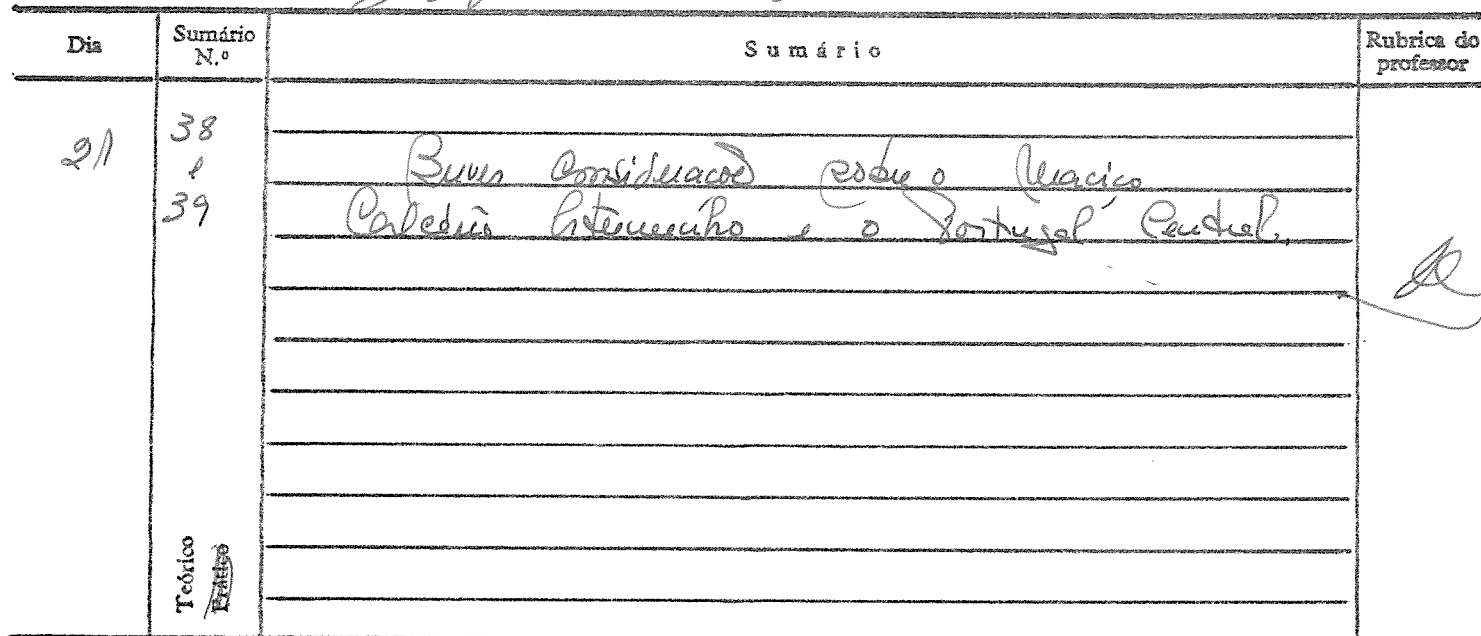 Dia
Sumário N.º
Sumário
Rubrica do professor
21
38
e
39
Breves considerações sobre o Maciço
Calcário Estremenho e o Portugal Central.
Teórico
Prático